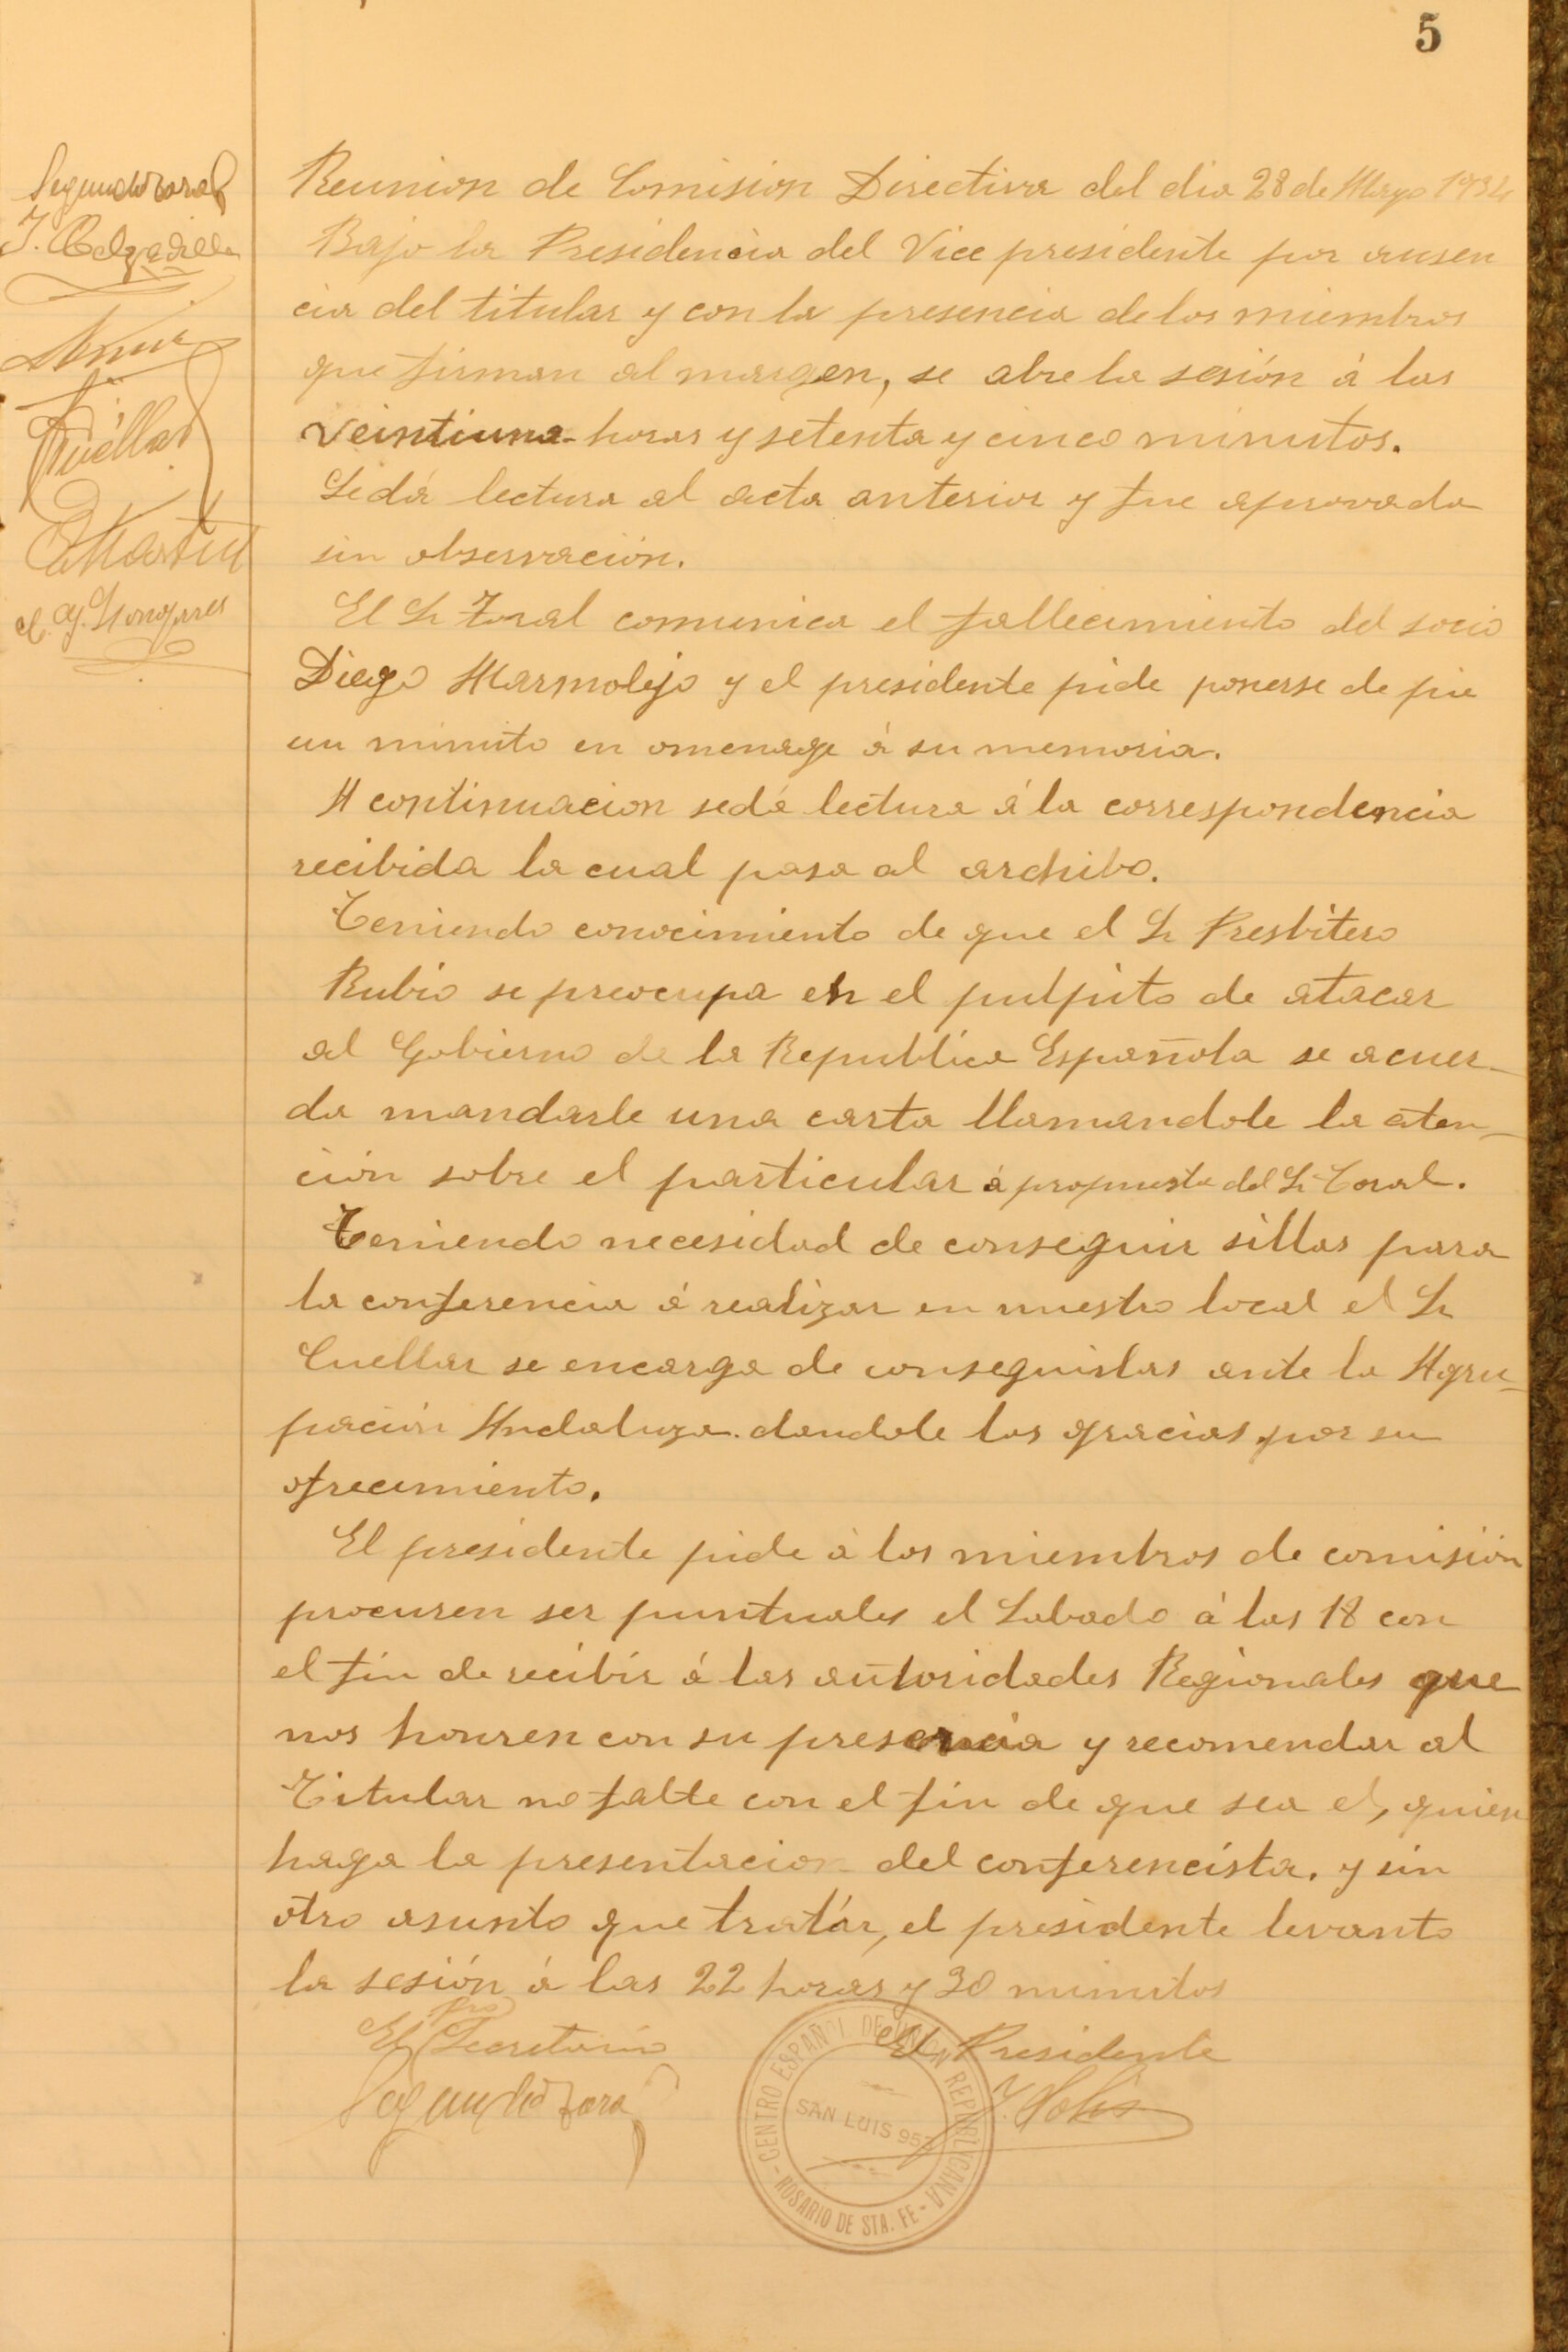 5
Segundo Toral
J. Calzadilla
Cuéllar
E Martin
Reunion de Comision Directiva del dia 28 de Mayo 1934
Bajo la Presidencia del Vice presidente por ausen
cia del titular y con la presencia de los miembros
que firman al margen, se abre la sesión á las
veintiuna horas y setenta y cinco minutos.
Se dá lectura al acta anterior y fue aprovada
sin observación.
El Sr Toral comunica el fallecimiento del socio
Diego Marmolejo y el presidente pide ponerse de pie
un minuto en omenage á su memoria.
A continuacion se dá lectura á la correspondencia
recibida la cual pasa al archibo.
Teniendo conocimiento de que el Sr Presbitero
Rubio se preocupa en el pulpito de atacar
al Gobierno de la Republica Española se acuer-
da mandarle una carta llamandole la aten-
ción sobre el particular á propuesta del Sr Toral.
Teniendo necesidad de conseguir sillas para
la conferencia á realizar en nuestro local el Sr
Cuellar se encarga de conseguirlas ante la Agru-
pación Andaluza. dandole las gracias por su
ofrecimiento.
El presidente pide á los miembros de comisión
procuren ser puntuales el Sabado á las 18 con
el fin de recibir á las autoridades Regionales que
nos honren con su presencia y recomendar al
Titular no falte con el fin de que sea el, quien
haga la presentacion del conferencista. y sin
otro asunto que tratár, el presidente levanto
la sesión á las 22 horas y 30 minutos
El Pro Secretario
El Presidente
Segundo Toral
J. Solis
CENTRO ESPAÑOL DE UNION REPUBLICANA
SAN LUIS 953
ROSARIO DE STA. FE